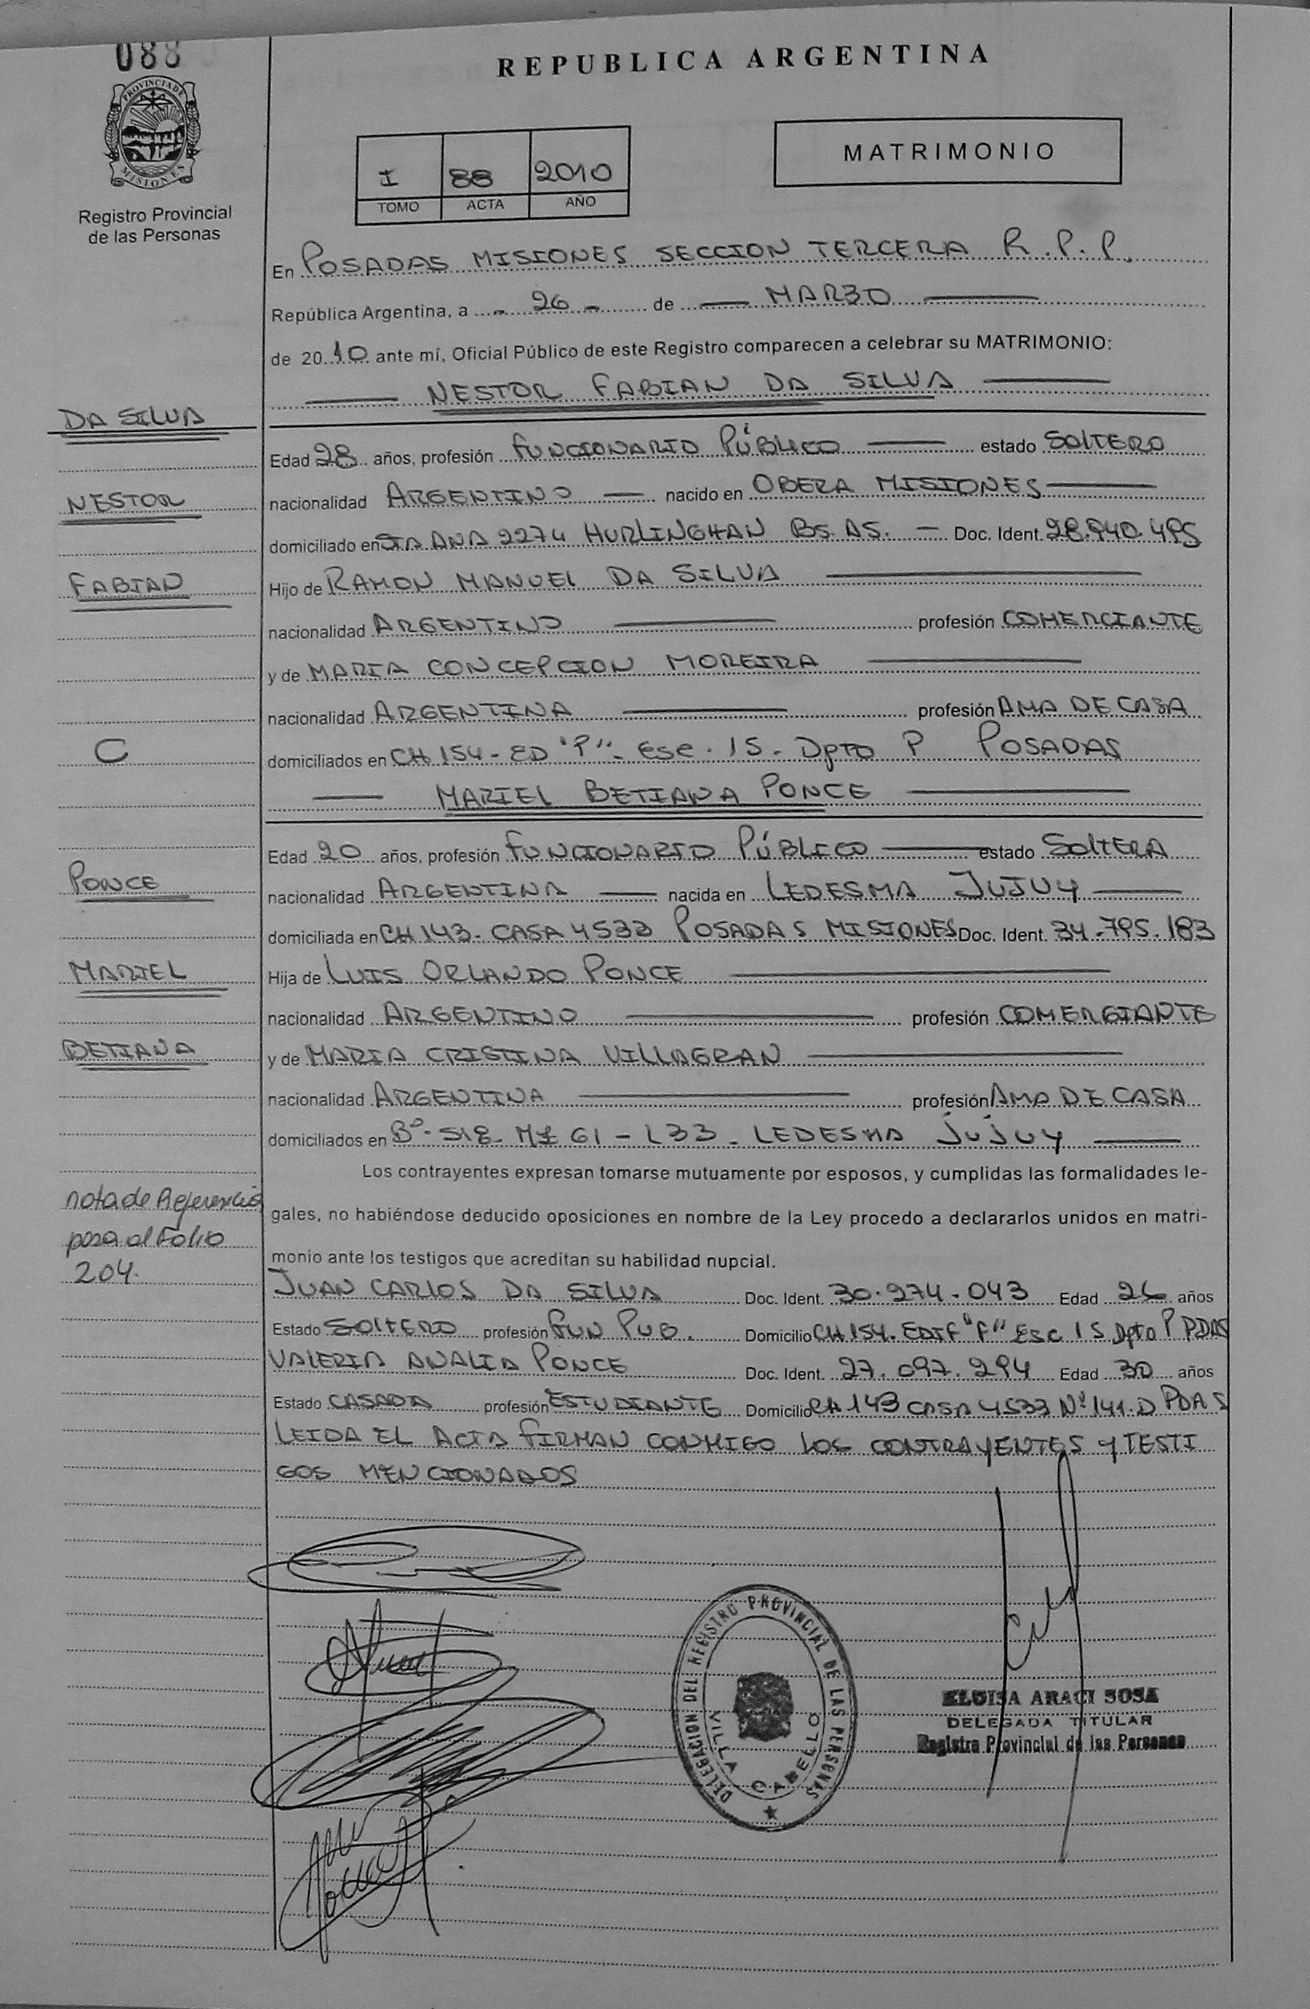 088
PROVINCIA DE
MISIONES
Registro Provincial
de las Personas
REPUBLICA ARGENTINA
I 88 2010
TOMO ACTA AÑO
MATRIMONIO
En POSADAS MISIONES SECCION TERCERA R.P.P.
República Argentina, a - 26 - de MARZO
de 2010 ante mí, Oficial Público de este Registro comparecen a celebrar su MATRIMONIO:
NESTOR FABIAN DA SILVA
DA SILVA
Edad 28 años, profesión FUNCIONARIO PÚBLICO estado SOLTERO
NESTOR
nacionalidad ARGENTINO nacido en OBERA MISIONES
domiciliado en STA ANA 2274 HURLINGHAN BS. AS. - Doc. Ident. 28.940.495
FABIAN
Hijo de RAMON MANUEL DA SILVA
nacionalidad ARGENTINO profesión COMERCIANTE
y de MARIA CONCEPCION MOREIRA
nacionalidad ARGENTINA profesión AMA DE CASA
C
domiciliados en CH 154 - ED "P" - Esc. 15 - Dpto P POSADAS
MARIEL BETIANA PONCE
Edad 20 años, profesión FUNCIONARIO PÚBLICO estado SOLTERA
PONCE
nacionalidad ARGENTINA nacida en LEDESMA JUJUY
domiciliada en CH 143 - CASA 4533 POSADAS MISIONES Doc. Ident. 34.795.183
MARIEL
Hija de LUIS ORLANDO PONCE
nacionalidad ARGENTINO profesión COMERCIANTE
BETIANA
y de MARIA CRISTINA VILLAGRAN
nacionalidad ARGENTINA profesión AMA DE CASA
domiciliados en Bº - 61 - L33 - LEDESMA JUJUY
Los contrayentes expresan tomarse mutuamente por esposos, y cumplidas las formalidades le-
nota de Referencia
gales, no habiéndose deducido oposiciones en nombre de la Ley procedo a declararlos unidos en matri-
pasa al Folio
monio ante los testigos que acreditan su habilidad nupcial.
204.
JUAN CARLOS DA SILVA Doc. Ident. 30.274.043 Edad 26 años
Estado SOLTERO profesión FUN PUB. Domicilio CH 154 - EDIF "F" Esc 15 Dpto P PDAS
VALERIA ANALIA PONCE Doc. Ident. 27.097.294 Edad 30 años
Estado CASADA profesión ESTUDIANTE Domicilio CH 143 CASA 4533 Nº 141-D PDAS
LEIDA EL ACTA FIRMAN CONMIGO LOS CONTRAYENTES Y TESTI
GOS MENCIONADOS
DELEGACION DEL REGISTRO PROVINCIAL DE LAS PERSONAS
VILLA CABELLO
ELUISA ARACI SOSA
DELEGADA TITULAR
Registro Provincial de las Personas